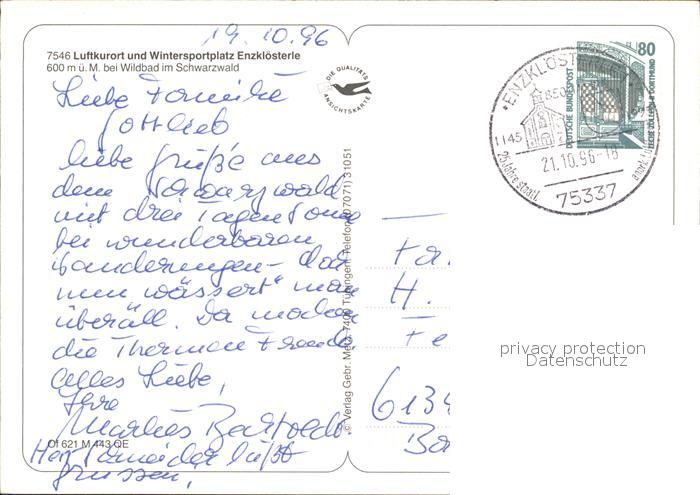 19.10.96
7546 Luftkurort und Wintersportplatz Enzklösterle
600 m ü. M. bei Wildbad im Schwarzwald
DIE QUALITÄTS
ANSICHTSKARTE
Liebe Familie
Gottlieb
liebe Grüße aus
dem Schwarzwald
mit drei Tagen Sonne
bei wunderbaren
Wanderungen - doch
nun wässert" man
überall. Da machen
die Thermen Freude
Alles Liebe,
Ihre
Of 621 M 443 QE
läßt
grüssen,
© Verlag Gebr. Metz, 7400 Tübingen, Telefon (07071) 31051
80
DEUTSCHE BUNDESPOST
ZECHE ZOLLERN II DORTMUND
ENZKLÖSTERLE
1145
850
21.10.96-18
25 Jahre staatl.
anerk.
75337
Fa
H.
Fe
6134
Ba
privacy protection
Datenschutz